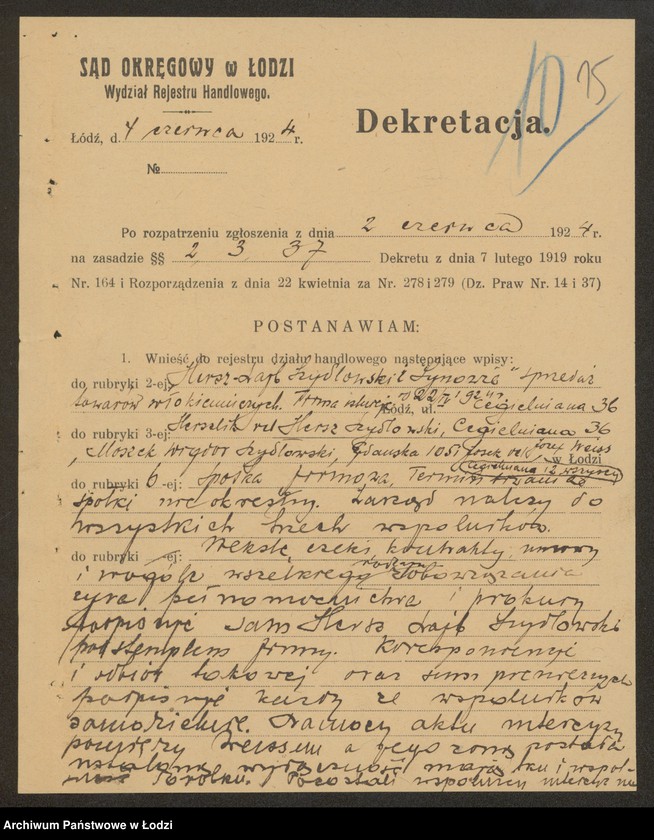 SĄD OKRĘGOWY w ŁODZI
Wydział Rejestru Handlowego.
10 15
Dekretacja.
Łódź, d. 4 czerwca 1924 r.
№
Po rozpatrzeniu zgłoszenia z dnia 2 czerwca 1924 r.
na zasadzie §§ 2, 3, 37 Dekretu z dnia 7 lutego 1919 roku
Nr. 164 i Rozporządzenia z dnia 22 kwietnia za Nr. 278 i 279 (Dz. Praw Nr. 14 i 37)
POSTANAWIAM:
1. Wnieść do rejestru działu handlowego następujące wpisy:
do rubryki 2-ej: „Hersz-Lajb Szydłowski i Synowie" sprzedaż
towarów włókienniczych. Firma istnieje Łódź, ul. Cegielniana 36
do rubryki 3-ej: Herszlik vel Hersz Szydłowski, Cegielniana 36
Moszek Szydłowski, Gdańska Weiss
Cegielniana 12 wszyscy w Łodzi
do rubryki 6-ej: Spółka firmowa, Termin trwania
spółki nieokreślony. Zarząd należy do
wszystkich trzech wspólników.
do rubryki -ej: Weksle, czeki, kontrakty, umowy
i wogóle wszelkiego rodzaju zobowiązania
pełnomocnictwa i prokury
podpisuje sam Hersz Lajb Szydłowski
pod stemplem firmy. Korespondencję
i odbiór takowej oraz sum pieniężnych
podpisuje każdy ze wspólników
samodzielnie. Na mocy aktu intercyzy
pomiędzy Weissem a jego żoną została
ustalona wyłączność majątku i wspól-
ność dorobku. Pozostali wspólnicy intercyz nie
Archiwum Państwowe w Łodzi